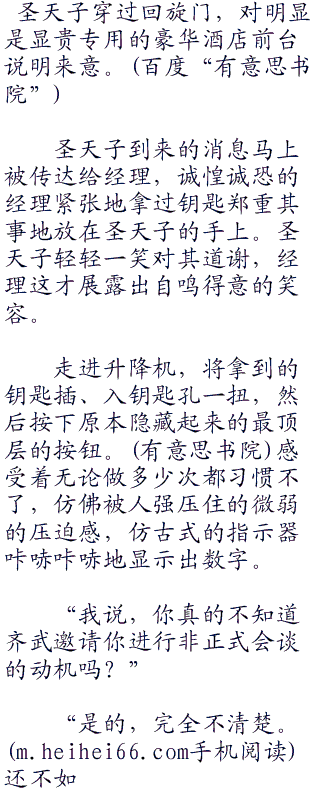 圣天子穿过回旋门，对明显
是显贵专用的豪华酒店前台
说明来意。(百度“有意思书
院”)
圣天子到来的消息马上
被传达给经理，诚惶诚恐的
经理紧张地拿过钥匙郑重其
事地放在圣天子的手上。圣
天子轻轻一笑对其道谢，经
理这才展露出自鸣得意的笑
容。
走进升降机，将拿到的
钥匙插、入钥匙孔一扭，然
后按下原本隐藏起来的最顶
层的按钮。(有意思书院)感
受着无论做多少次都习惯不
了，仿佛被人强压住的微弱
的压迫感，仿古式的指示器
咔哧咔哧地显示出数字。
“我说，你真的不知道
齐武邀请你进行非正式会谈
的动机吗？”
“是的，完全不清楚。
(m.heihei66.com手机阅读)
还不如